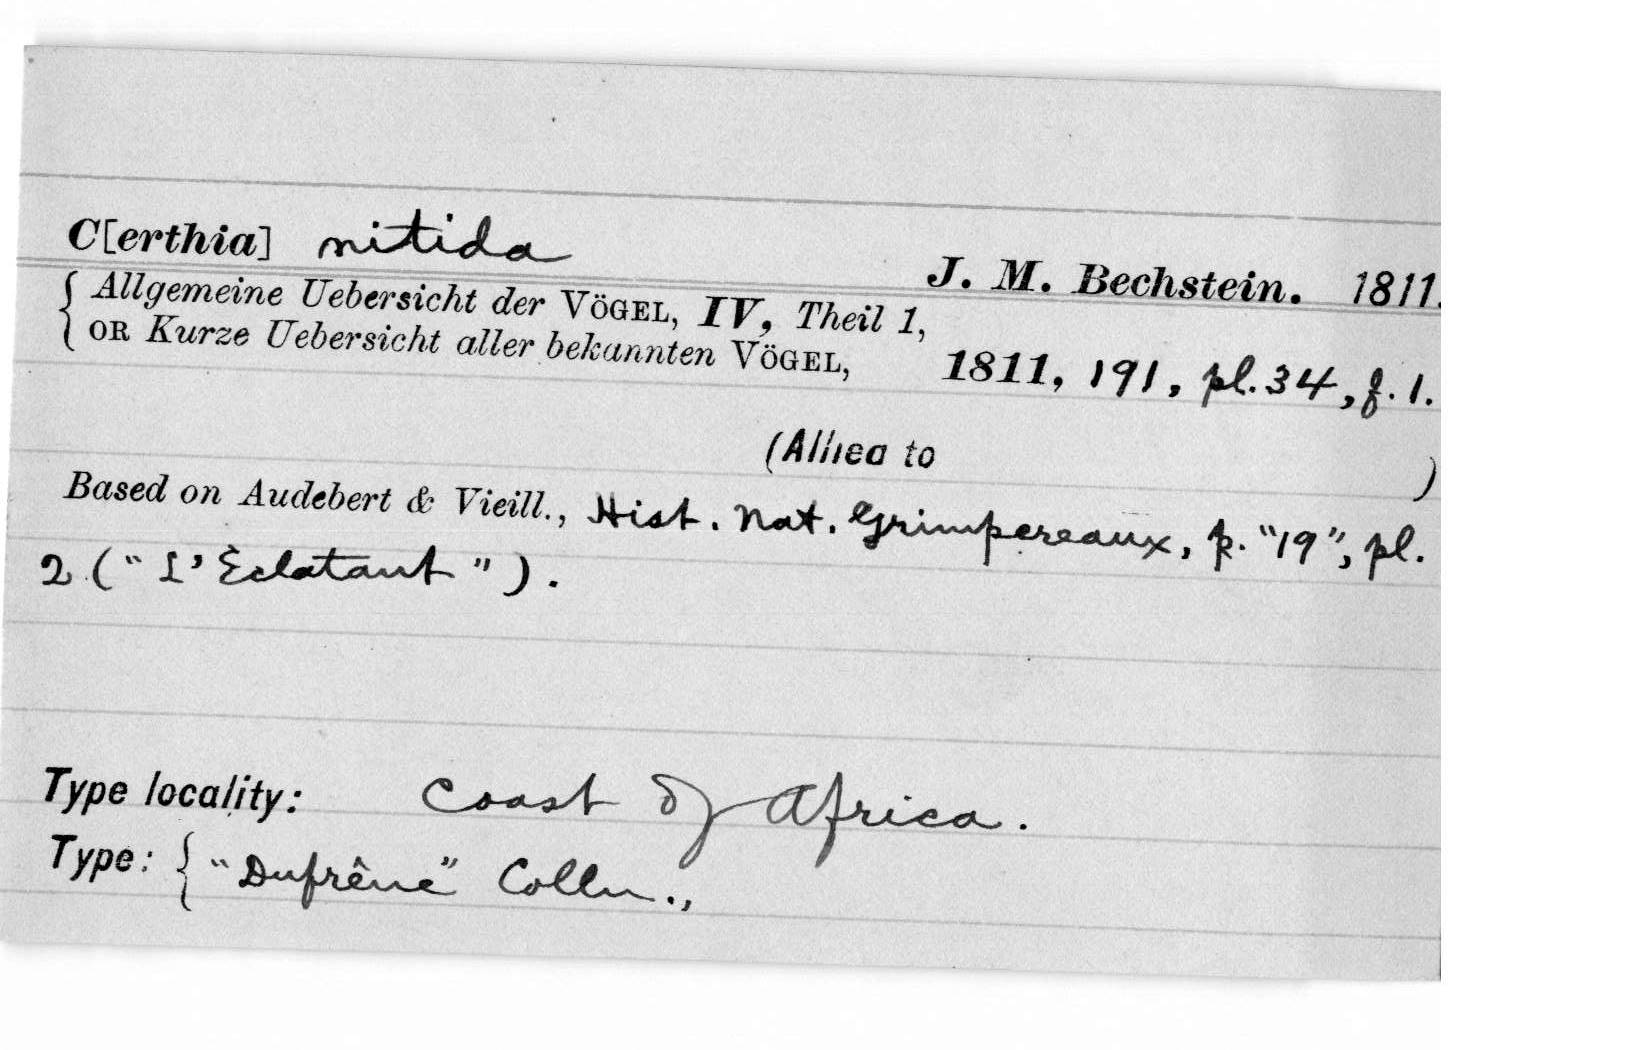 C[erthia] nitida
J. M. Bechstein. 1811.
{ Allgemeine Uebersicht der VÖGEL, IV, Theil 1,
OR Kurze Uebersicht aller bekannten VÖGEL, 1811, 191, pl. 34, f. 1.
(Allied to )
Based on Audebert & Vieill., Hist. Nat. Grimpereaux, p. "19", pl.
2 ("L'Èclatant").
Type locality: Coast of Africa.
Type: { "Dufrêne" Colln.,